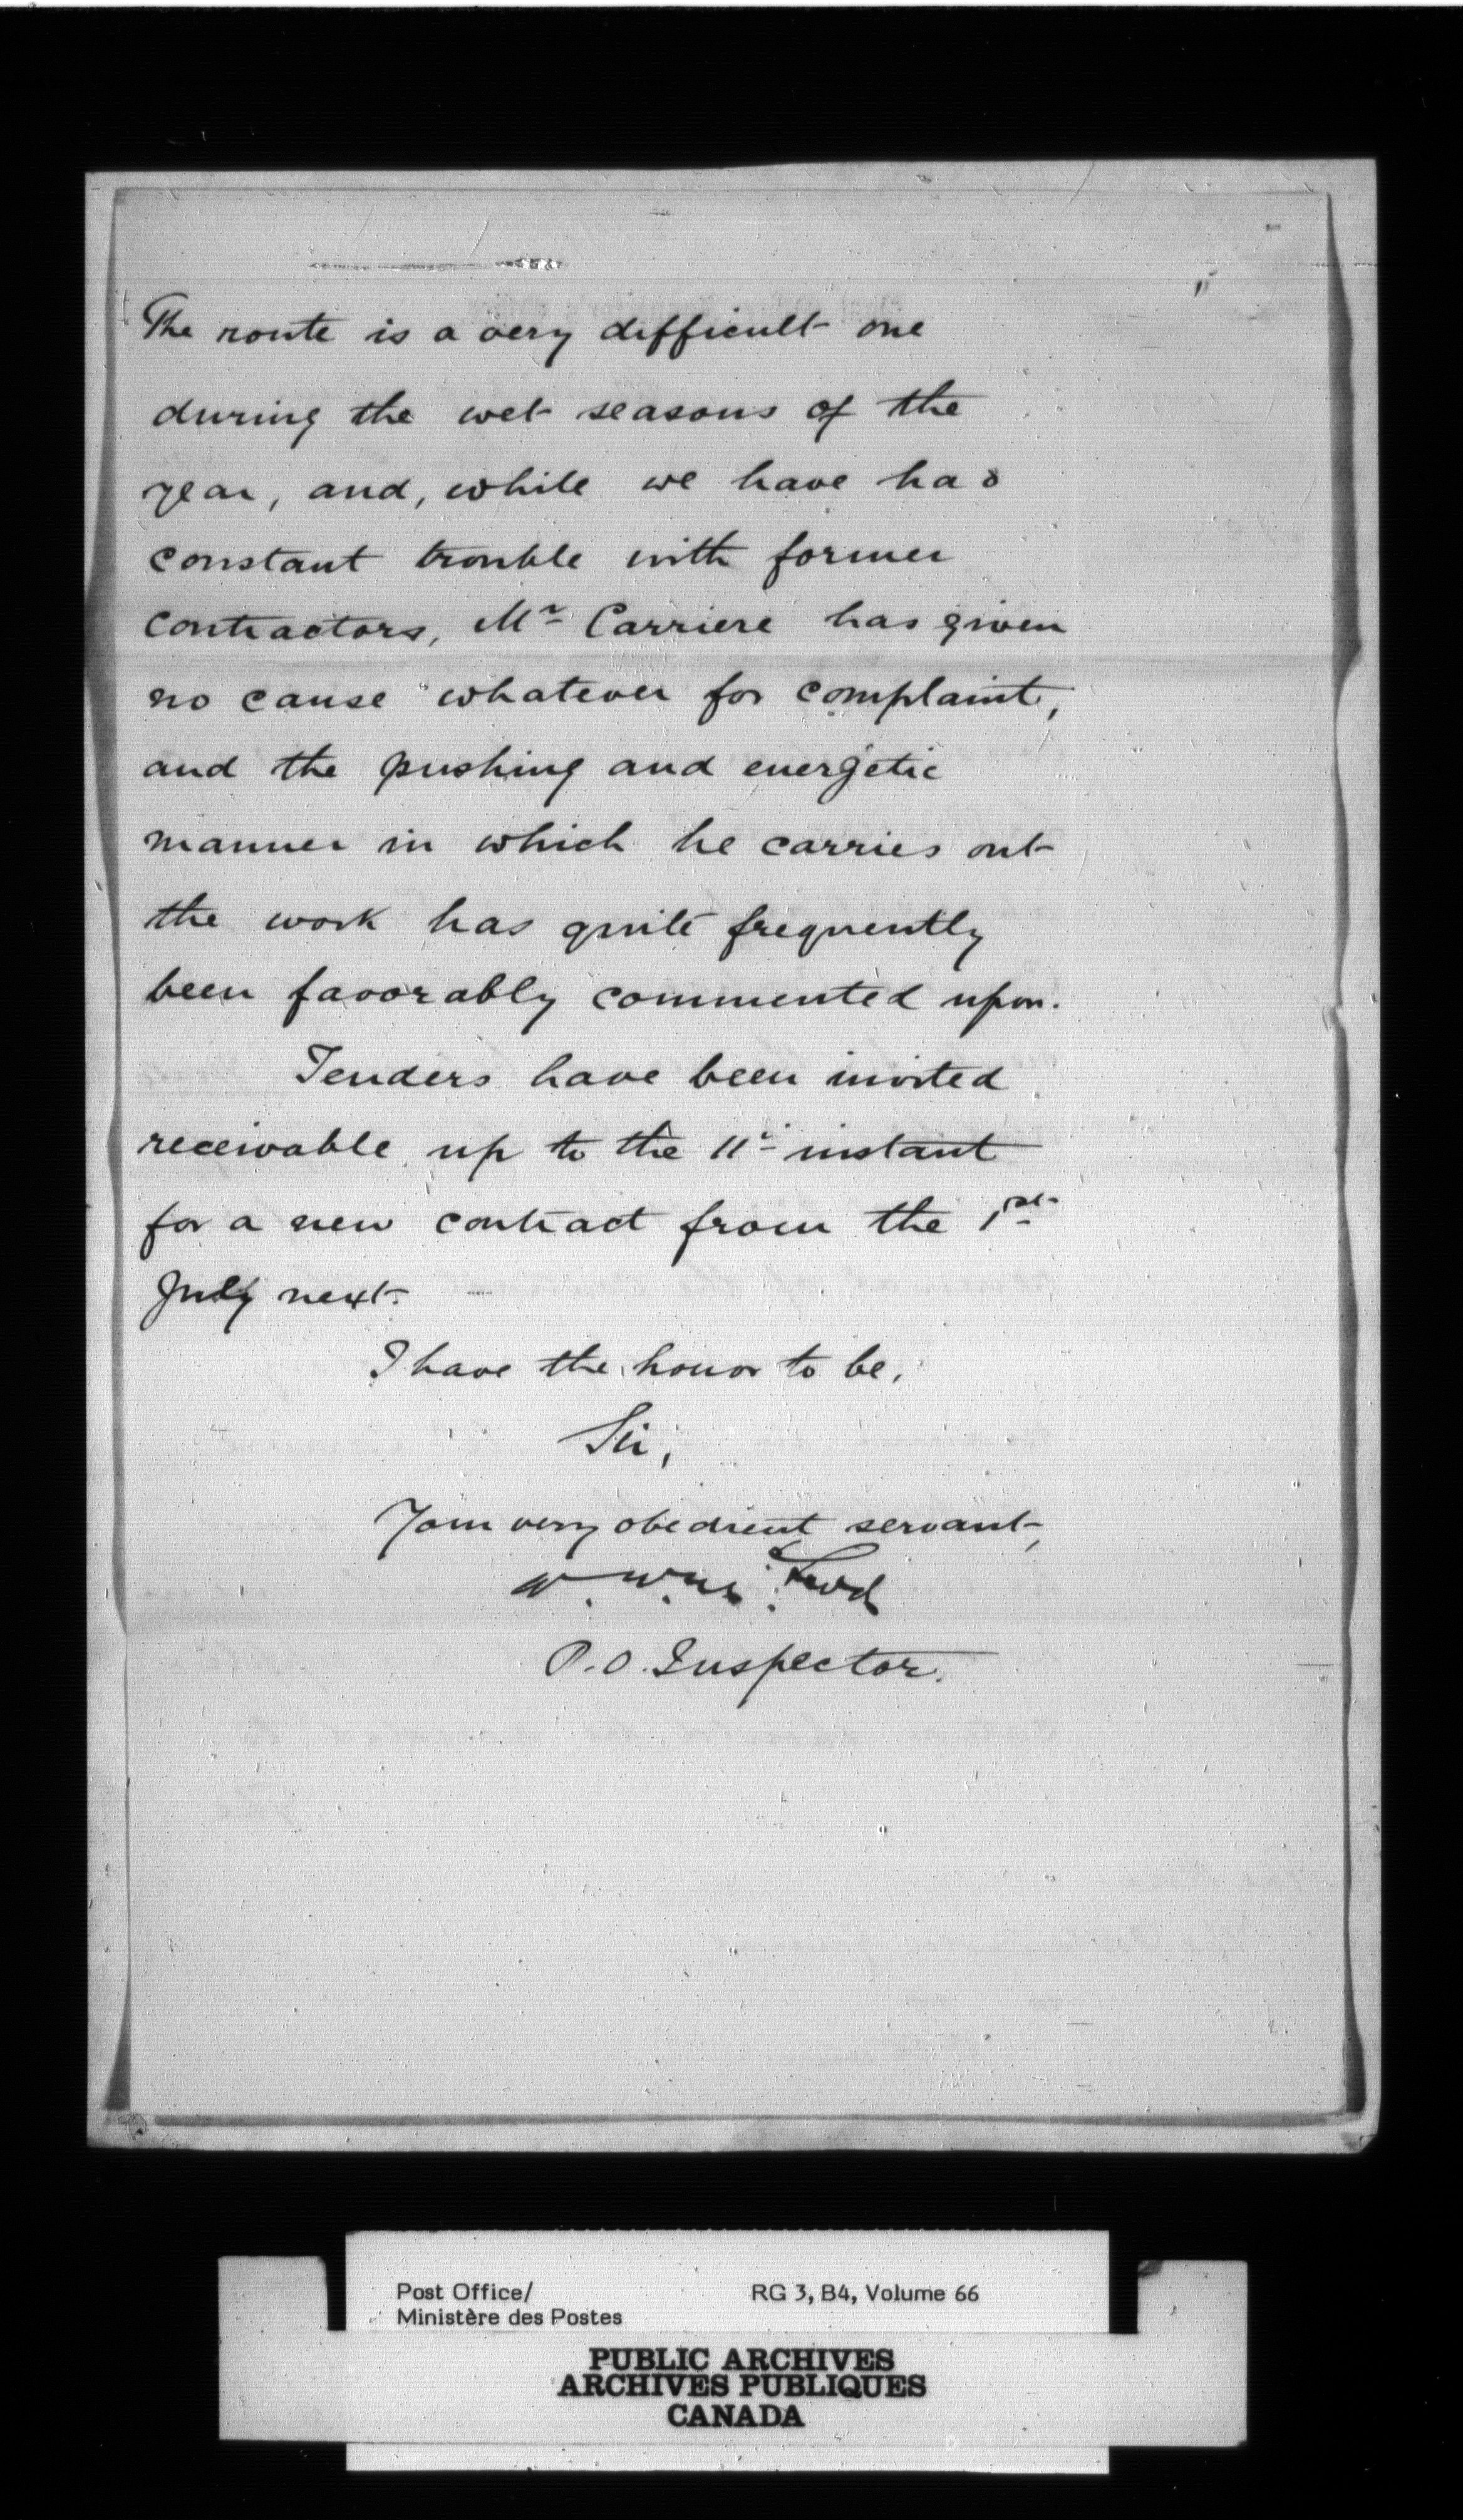 The route is a very difficult one
during the wet seasons of the
year, and, while we have had
constant trouble with former
contractors, Mr Carriere has given
no cause whatever for complaint,
and the pushing and energetic
manner in which he carries out
the work has quite frequently
been favorably commented upon.
Tenders have been invited
receivable up to the 11th instant
for a new contract from the 1st
July next.
I have the honor to be,
Sir,
Your very obedient servant,
P.O. Inspector.
Post Office/ RG 3, B4, Volume 66
Ministère des Postes
PUBLIC ARCHIVES
ARCHIVES PUBLIQUES
CANADA